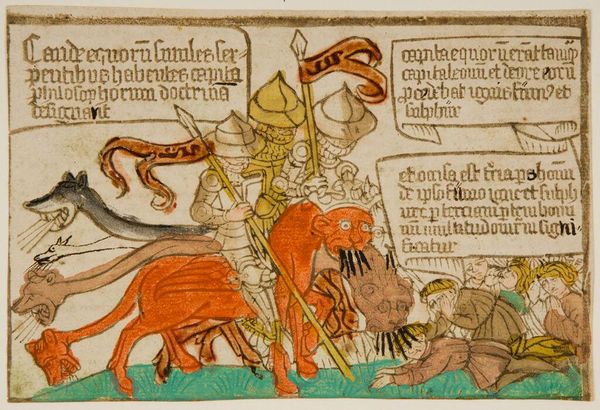 Caude equorū similes ser-
pentibus habentes capita
philosophorum doctrina
designant
capita equorū erāt tanq̄
capita leonū et de ore eorū
procedebat ignis fum9 et
sulphur
et occisa est tercia ps hoīm
de ipso fumo igne et sulph
ure p terciam ptem homī
multitudo signi-
ficatur